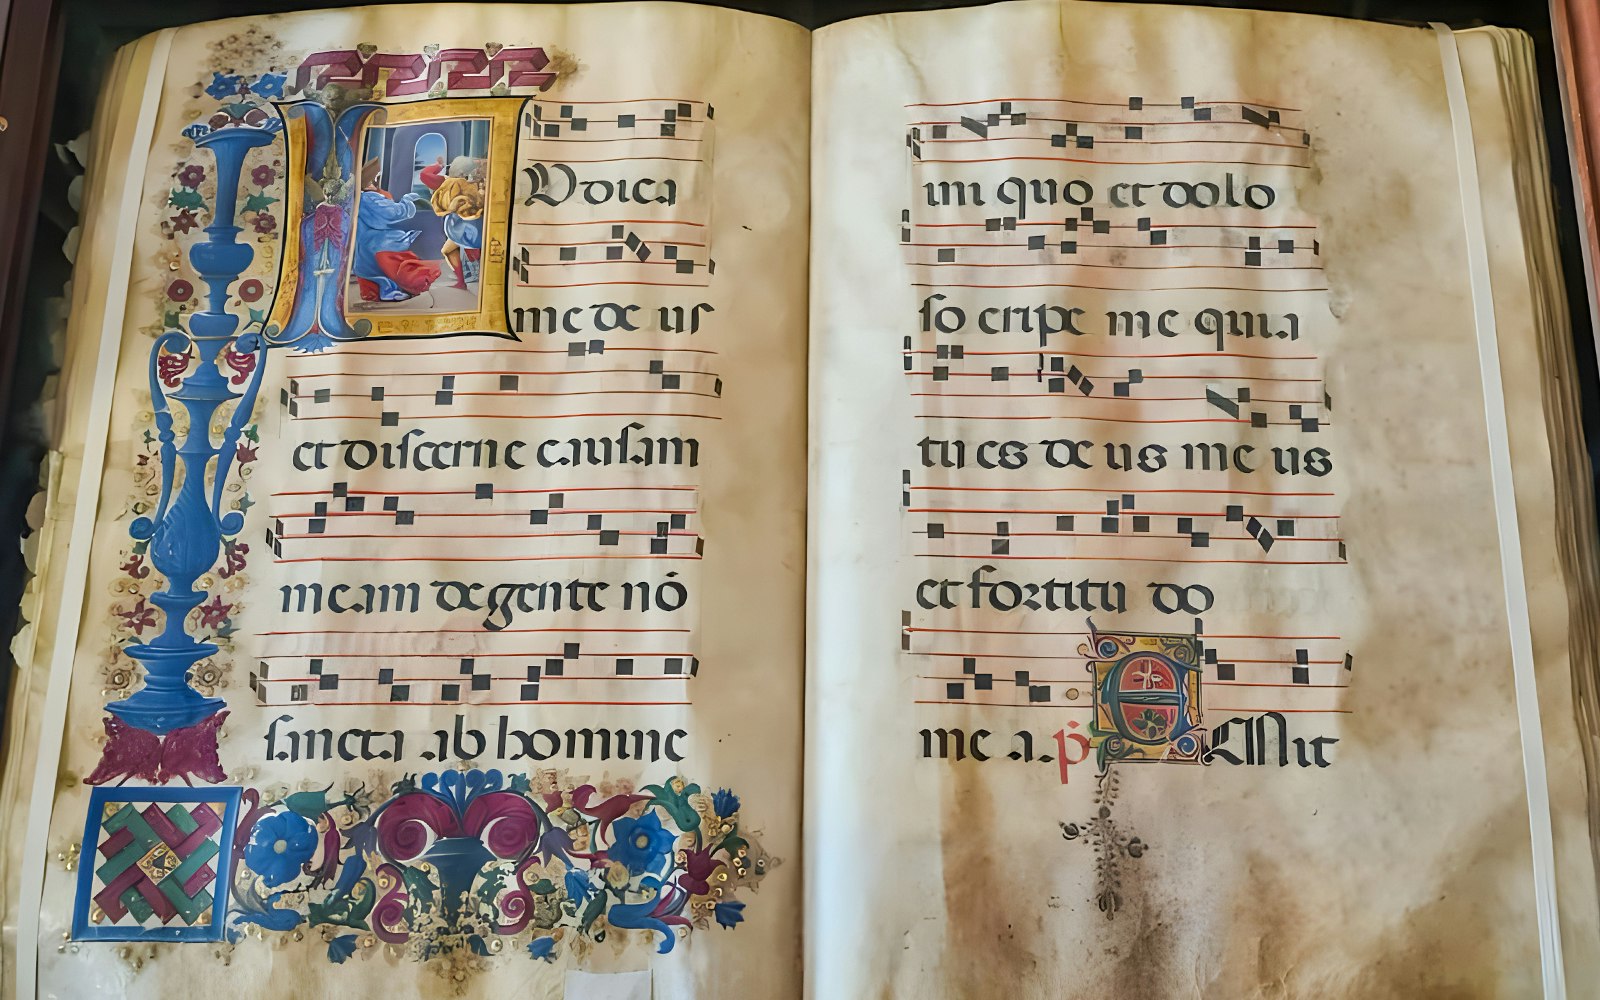 IVdica
me de uſ
et diſcerne cauſam
meam de gente nō
ſancta ab homine
ini quo et dolo
ſo eripe me quia
tu es de us me us
et fortitu do
me a. p̄ EMit